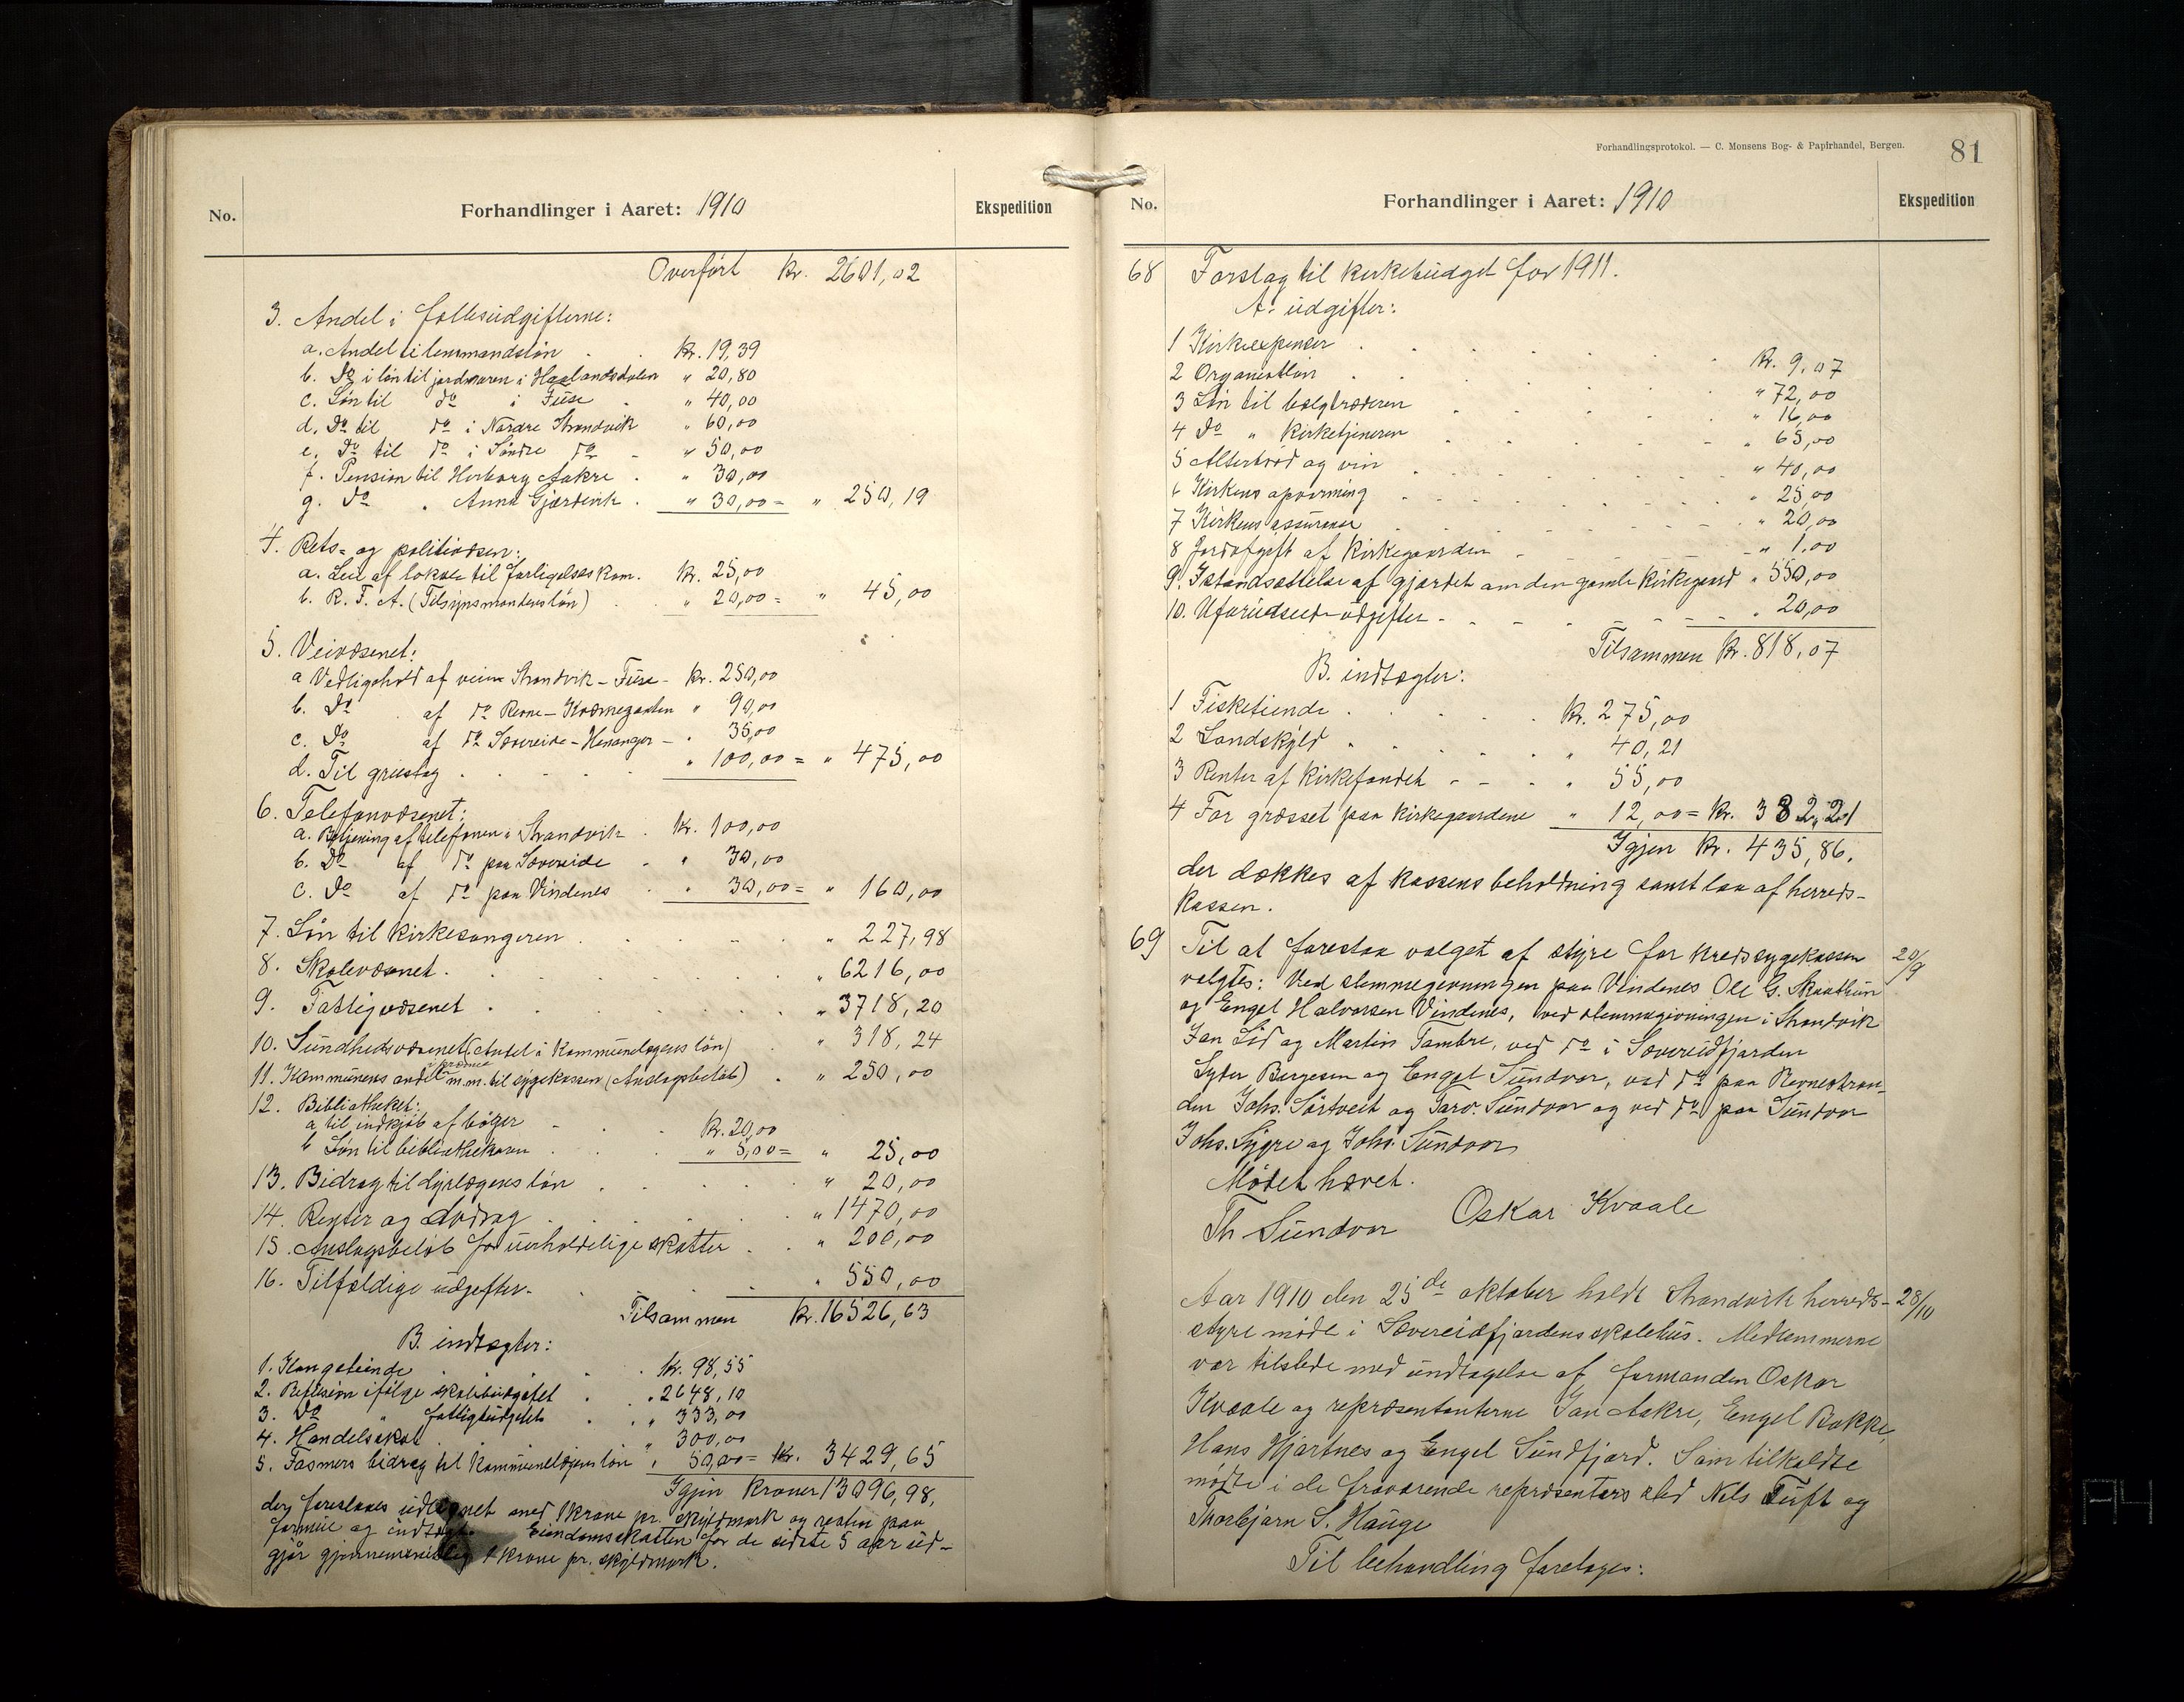 No.
Forhandlinger i Aaret: 1910
Ekspedition
Overført Kr. 2601,02
3. Andel i fællesudgifterne:
a. Andel til lensmandsløn . . Kr. 19,39
b. Do i løn til jordmoren i Haalandsdalen " 20,80
c. Løn til do i Fuse . " 40,00
d. Do til do i Nordre Strandvik " 60,00
e. Do til do i Søndre do - " 50,00
f. Pension til Herborg Aakre . " 30,00
g. do . Anna Gjærdevik . " 30,00 = " 250,19
4. Rets- og politivæsen:
a. Leie af lokale til forligelseskom. Kr. 25,00
b. R. F. A. (Tilsynsmandens løn) . " 20,00 = " 45,00
5. Veivæsenet:
a Vedligehold af veien Strandvik - Fuse - Kr. 250,00
b. Do . af do Revne - Kvarnegaarden " 90,00
c. Do af do Sævereide - Henanger - " 35,00
d. Til grustag . . . . " 100,00 = " 475,00
6. Telefonvæsenet:
a. Betjening af telefonen i Strandvik . Kr. 100,00
b. Do af do paa Sævereide - " 30,00
c. Do af do paa Vindenes . " 30,00 = " 160,00
7. Løn til kirkesangeren . . . . . " 227,98
8. Skolevæsenet . . . . . . " 6216,00
9. Fattigvæsenet . . . . . . " 3718,20
10. Sundhedsvæsenet (Andel i kommunelægens løn) . " 318,24
11. Kommunens andel i præmie m.m. til sygekassen (Anslagsbeløb) . " 250,00
12. Bibliotheket:
a til indkjøb af bøger - . . Kr. 20,00
b Løn til bibliothekaren . . " 5,00 = " 25,00
13. Bidrag til dyrlægens løn . . . . " 20,00
14. Renter og Avdrag . . . . . " 1470,00
15. Anslagsbeløb for uerholdelige skatter . . " 200,00
16. Tilfældige udgifter. . . . " 550,00
Tilsammen Kr. 16526,63
B. indtægter:
1. Kongetiende . . . Kr. 98,55
2. Refusion ifølge skolebudgettet . " 2648,10
3. Do " fattigbudgettet . . " 333,00
4. Handelsskat . . . " 300,00
5. Fasmers bidrag til kommunelægens løn " 50,00 = Kr. 3429,65
Igjen Kroner 13096,98,
der foreslaaes udlignet med 1 krone pr. skyldmark og resten paa
formue og indtægt. Eiendomsskatten for de sidste 5 aar ud-
gjør gjennemsnitlig 1 krone pr. skyldmark.
Forhandlingsprotokol. — C. Monsens Bog- & Papirhandel, Bergen.
81
No.
Forhandlinger i Aaret: 1910
Ekspedition
68 Forslag til kirkebudget for 1911.
A. udgifter:
1 Kirkeexpenser . . . . . . Kr. 9,07
2 Organistløn . . . . . . " 72,00
3 Løn til bælgtræderen . . . . " 16,00
4 Do " Kirketjeneren . . . . " 65,00
5 Alterbrød og vin . . . . . " 40,00
6 Kirkens opvarming . . . . . " 25,00
7 Kirkens assuranse . . . . . " 20,00
8 Jordafgift af kirkegaarden - - - - " 1,00
9. Istandsættelse af gjærdet om den gamle kirkegaard " 550,00
10. Uforudseede udgifter - - - - " 20,00
Tilsammen Kr. 818,07
B. indtægter:
1 Fisketiende . . . . . Kr. 275,00
2 Landskyld . . . . . " 40,21
3 Renter af kirkefondet - - - " 55,00
4 For græsset paa kirkegaardene " 12,00 = Kr. 382,21
Igjen Kr. 435,86.
der dækkes af kassens beholdning samt laan af herreds-
kassen.
69 Til at forestaa valget af styre for kredssygekassen 20/9
valgtes: Ved stemmegivningen paa Vindenes Ole G. Skaathun
og Engel Halvorsen Vindenes, ved stemmegivningen i Strandvik
Jan Lid og Martin Tombre, ved do i Sævereidfjorden
Syder Bergesen og Engel Sundvor, ved do paa Revnestran-
den Johs. Sørtveit og Tarv. Sundvor og ved do paa Sundvor
Johs. Lygre og Johs. Sundvor
Mødet hævet.
Th Sundvor Oskar Kvaale
Aar 1910 den 25de oktober holdt Strandvik herreds- 28/10
styre møde i Sævereidfjordens skolehus. Medlemmerne
var tilstede med undtagelse af formanden Oskar
Kvaale og repræsentanterne Jan Aakre, Engel Bakke,
Hans Hjartnes og Engel Sundfjord. Som tilkaldte
mødte i de fraværende repræsentanters sted Nils Tuft og
Thorbjørn S. Hauge
Til behandling foretages: